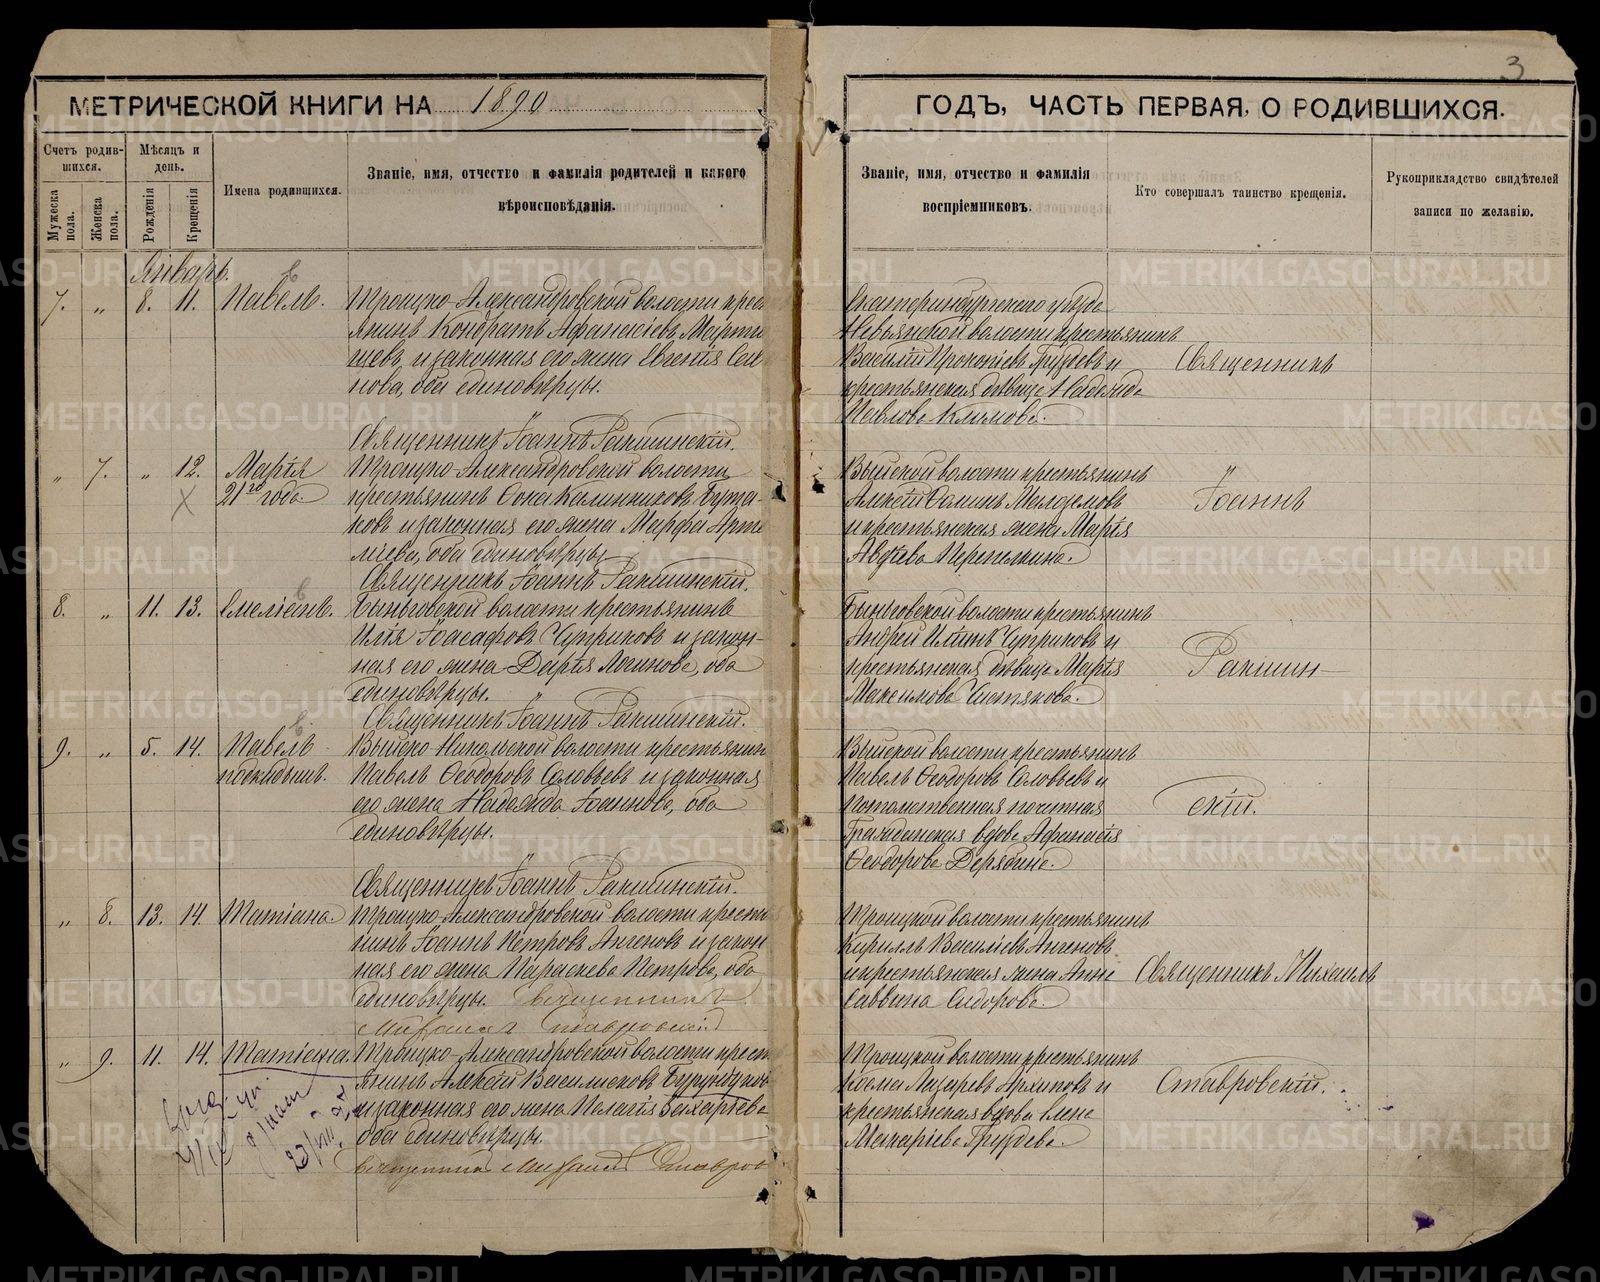 3
МЕТРИЧЕСКОЙ КНИГИ НА 1890
ГОДЪ, ЧАСТЬ ПЕРВАЯ, О РОДИВШИХСЯ.
Счетъ родив-
шихся.
Мужеска пола.
Женска пола.
Мѣсяцъ и
день.
Рожденія
Крещенія
Имена родившихся.
Званіе, имя, отчество и фамилія родителей и какого
вѣроисповѣданія.
Званіе, имя, отчество и фамилія
воспріемниковъ.
Кто совершалъ таинство крещенія.
Рукоприкладство свидѣтелей
записи по желанію.
Январь.
7. „ 8. 11. Павелъ.
Троицко-Александровской волости крес
янинъ Кондратъ Афанасіевъ
и законная его жена Евгенія
нова, оба единовѣрцы.
Священникъ Іоаннъ Ракшинскій.
Екатеринбургскаго уѣзда
Невьянской волости крестьянинъ
Василій Прокопіевъ Груздевъ и
крестьянская дѣвица Надежда
Павлова Климова.
„ 7. „ 12. Марія
21го года.
Троицко-Александровской волости
крестьянинъ Іона Калинниковъ
ковъ и законная его жена Марфа
оба единовѣрцы.
Священникъ Іоаннъ Ракшинскій.
Выйской волости крестьянинъ
Алексій
и крестьянская жена Марія
Авдѣева Перепелкина.
8. „ 11. 13. Емеліанъ.
Быньговской волости крестьянинъ
Илія Іоасафовъ Чуприковъ и закон-
ная его жена Дарія Логинова, оба
единовѣрцы.
Священникъ Іоаннъ Ракшинскій.
Быньговской волости крестьянинъ
Андрей Ильинъ Чуприковъ и
крестьянская дѣвица Марія
Максимова Чистякова.
9. „ 5. 14. Павелъ
подкидышъ.
Выйско-Никольской волости крестьянин
Павелъ Ѳеодоровъ Соловьевъ и законная
его жена Надежда Іоаннова, оба
единовѣрцы.
Священникъ Іоаннъ Ракшинскій.
Выйской волости крестьянинъ
Павелъ Ѳеодоровъ Соловьевъ и
потомственная почетная
гражданская вдова Афанасія
Ѳеодорова Дерябина.
Священникъ
Іоаннъ
Ракшин-
скій.
„ 8. 13. 14. Татіана.
Троицко-Александровской волости кресть
нинъ Іоаннъ Петровъ Аксеновъ и закон
ная его жена Параскева Петрова, оба
единовѣрцы. Священникъ
Михаилъ Ставровскій
Троицкой волости крестьянинъ
Кириллъ Василіевъ Аксеновъ
и крестьянская жена Анна
Саввина Сидорова.
Священникъ Михаилъ
„ 9. 11. 14. Татіана.
Троицко-Александровской волости крест
янинъ Алексій Василисковъ Бурундуков
и законная его жена Пелагія Захарьева
оба единовѣрцы.
Священникъ Михаилъ Ставров
Троицкой волости крестьянинъ
Косма Лазаревъ Архиповъ и
крестьянская вдова Елена
Макаріева Груздева.
Ставровскій.
METRIKI.GASO-URAL.RU